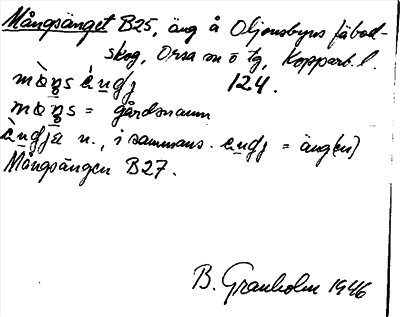 Mångsänget B25, äng å Oljonsbyns fäbod-
skog, Orsa sn ö tg, Kopparb. l.
124.
= gårdsnamn
n., i sammans. = äng(en)
Mångsängen B27.
B. Granholm 1946